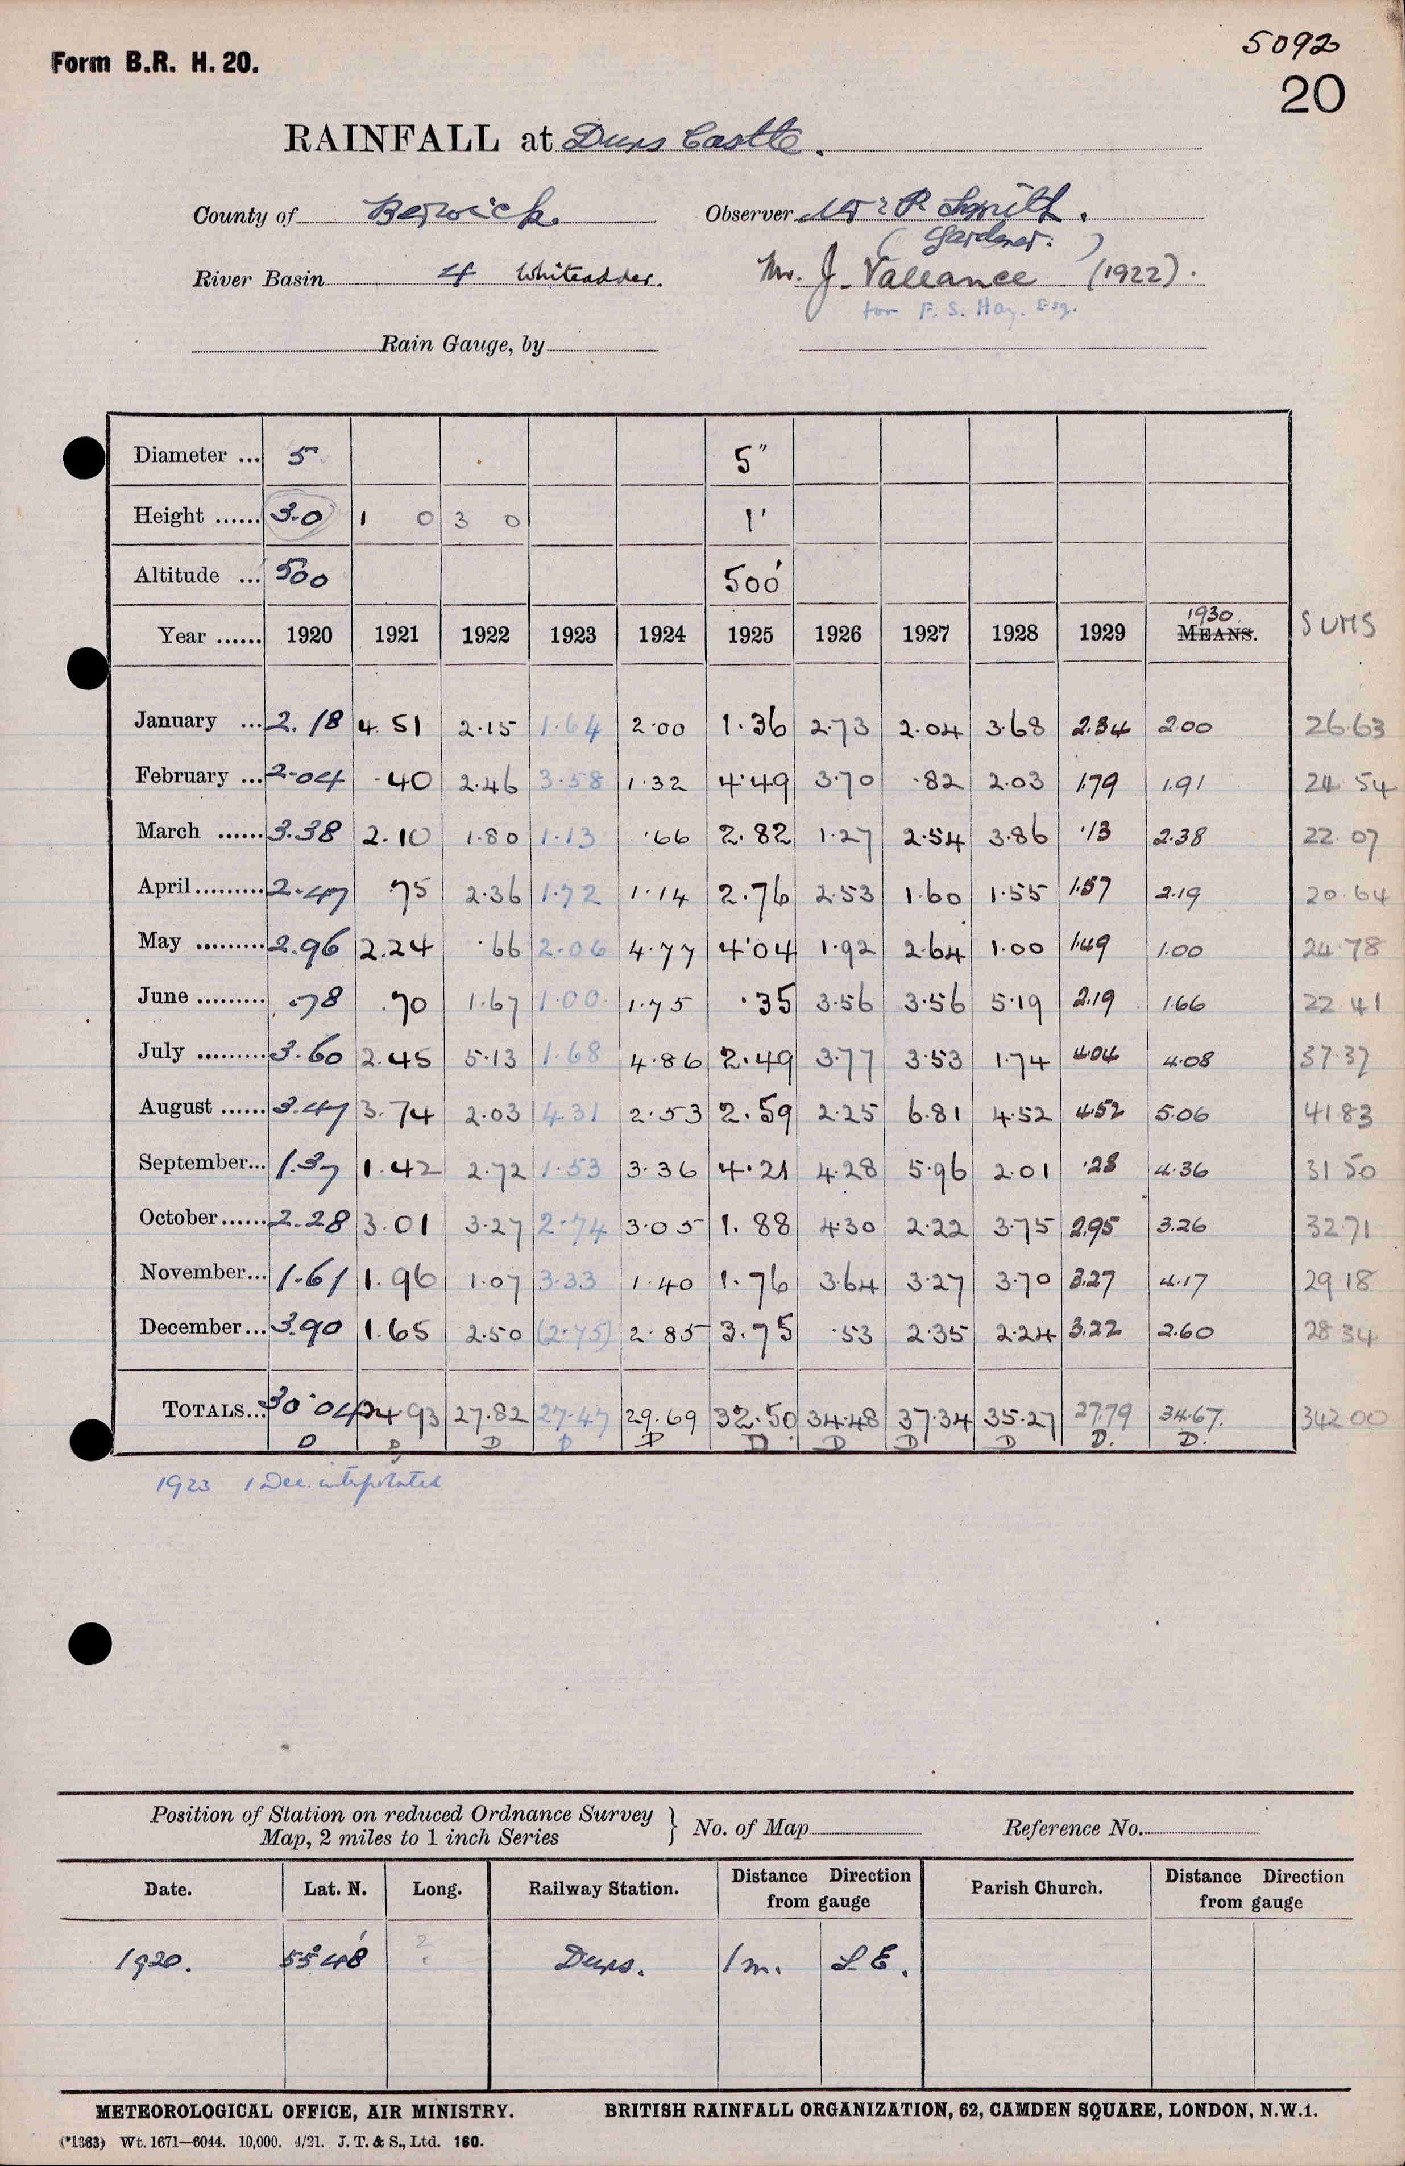 Form B.R. H. 20.
5092
20
RAINFALL at Duns Castle.
County of Berwick.
Observer Mr P. Smith.
(Gardener.)
River Basin 4 Whiteadder.
Mr. J. Vallance (1922).
for F. S. Hay. Esq.
Rain Gauge, by
Diameter ... 5 5"
Height ...... 3.0 1 0 3 0 1'
Altitude ... 500 500'
Year ...... 1920 1921 1922 1923 1924 1925 1926 1927 1928 1929 1930 MEANS. SUMS
January ... 2.18 4.51 2.15 1.64 2.00 1.36 2.73 2.04 3.68 2.34 2.00 26.63
February ... 2.04 .40 2.46 3.58 1.32 4.49 3.70 .82 2.03 1.79 1.91 24 54
March ...... 3.38 2.10 1.80 1.13 .66 2.82 1.27 2.54 3.86 .13 2.38 22.07
April ......... 2.47 .75 2.36 1.72 1.14 2.76 2.53 1.60 1.55 1.57 2.19 20.64
May ......... 2.96 2.24 .66 2.06 4.77 4.04 1.92 2.64 1.00 1.49 1.00 24.78
June ......... .78 .70 1.67 1.00 1.75 .35 3.56 3.56 5.19 2.19 1.66 22 41
July ......... 3.60 2.45 5.13 1.68 4.86 2.49 3.77 3.53 1.74 4.04 4.08 37.37
August ...... 3.47 3.74 2.03 4.31 2.53 2.59 2.25 6.81 4.52 4.52 5.06 41.83
September... 1.37 1.42 2.72 1.53 3.36 4.21 4.28 5.96 2.01 .28 4.36 31 50
October...... 2.28 3.01 3.27 2.74 3.05 1.88 4.30 2.22 3.75 2.95 3.26 32.71
November... 1.61 1.96 1.07 3.33 1.40 1.76 3.64 3.27 3.70 3.27 4.17 29 18
December... 3.90 1.65 2.50 (2.75) 2.85 3.75 .53 2.35 2.24 3.22 2.60 28 34
TOTALS... 30.04 24.93 27.82 27.47 29.69 32.50 34.48 37.34 35.27 27.79 34.67. 342 00
D D D D D D D D D D. D.
1923 1 Dec. interpolated
Position of Station on reduced Ordnance Survey
Map, 2 miles to 1 inch Series } No. of Map Reference No.
Date. Lat. N. Long. Railway Station. Distance Direction from gauge Parish Church. Distance Direction from gauge
1920. 55°48' ? Duns. 1 m. S E.
METEOROLOGICAL OFFICE, AIR MINISTRY. BRITISH RAINFALL ORGANIZATION, 62, CAMDEN SQUARE, LONDON, N.W.1.
(*1363) Wt. 1671—6044. 10,000. 4/21. J. T. & S., Ltd. 160.